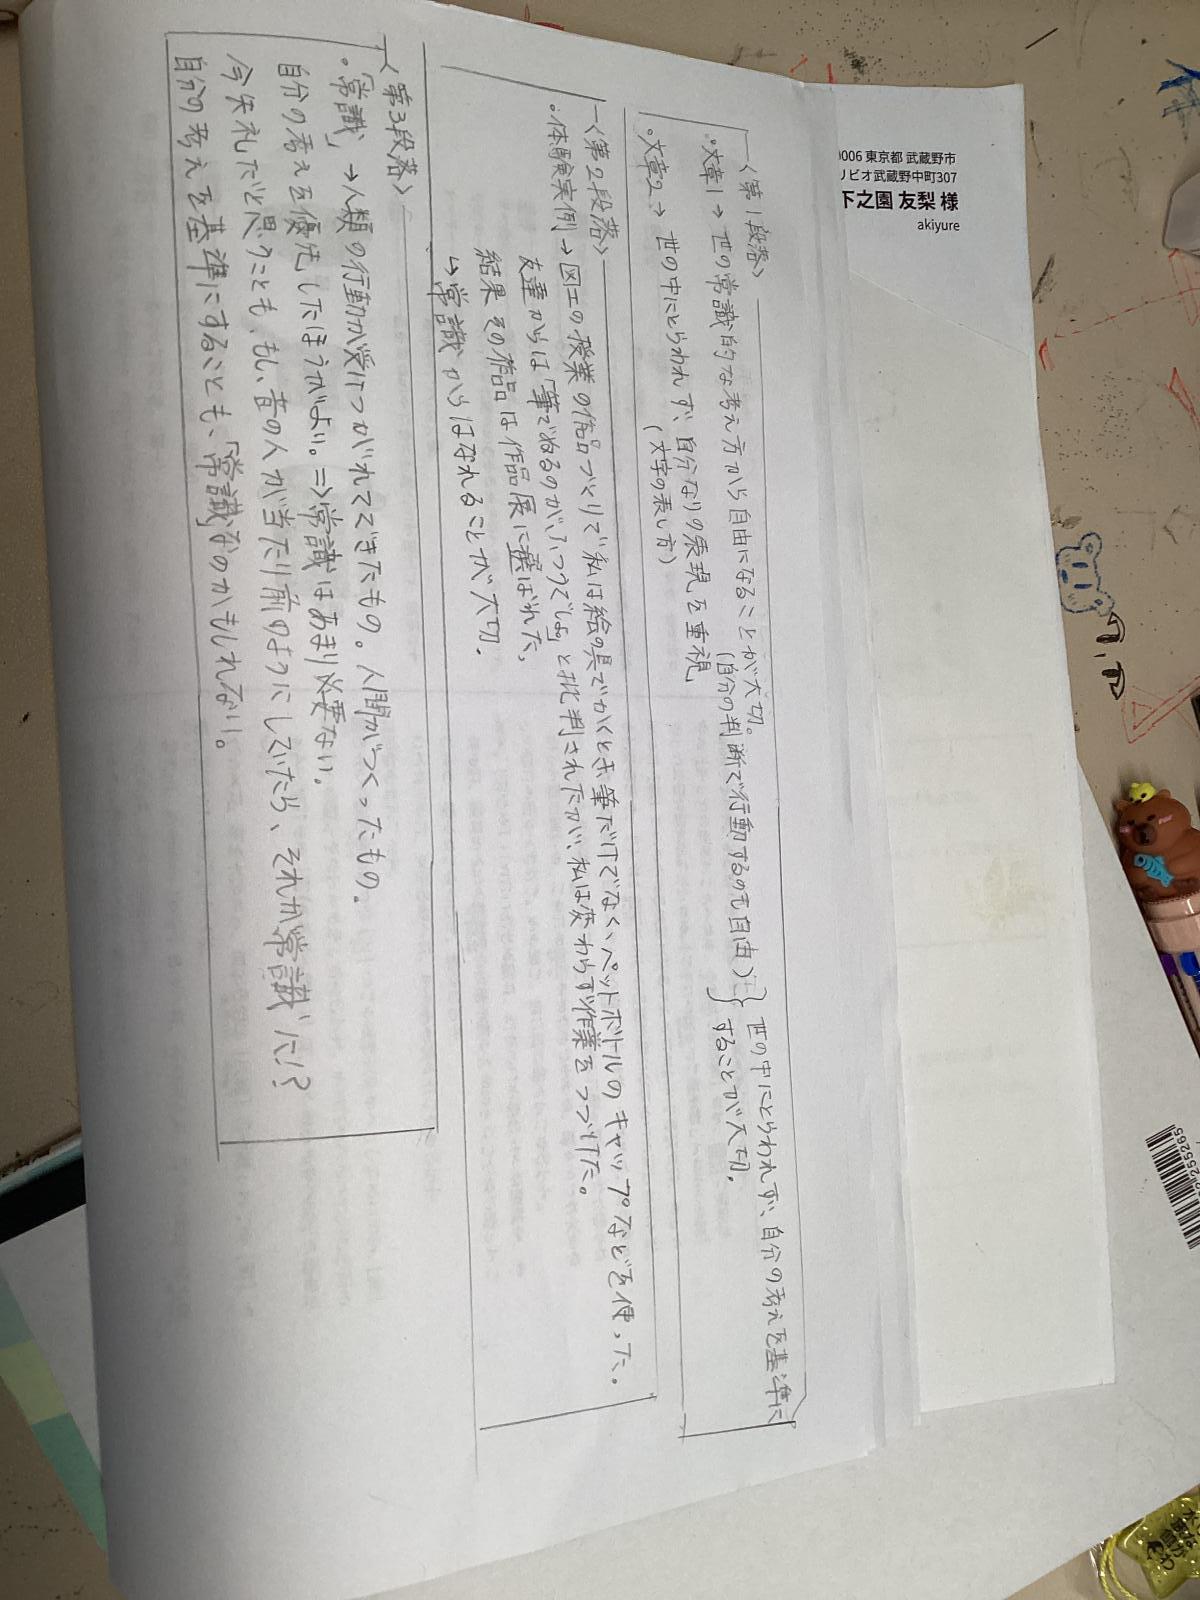 〈第1段落〉
。文章1→世の常識的な考え方から自由になることが大切。
(自分の判断で行動するのも自由)
。文章2→世の中にとらわれず、自分なりの表現を重視
(文字の表し方)
世の中にとらわれず、自分の考えを基準に
することが大切。
〈第2段落〉
。体験実例→図工の授業の作品づくりで私は絵の具でかくとき筆だけでなく、ペットボトルのキャップなどを使った。
友達からは「筆でぬるのがふつうでしょ」と批判されたが、私は変わらず作業をつづけた。
結果その作品は作品展に選ばれた。
↳常識からはなれることが大切。
〈第3段落〉
。「常識」→人類の行動が受けつがれてできたもの。人間がつくったもの。
自分の考えを優先したほうがよい。⇒常識はあまり必要ない。
今失礼だと思うことも、もし、昔の人が当たり前のようにしていたら、それが常識に!?
自分の考えを基準にすることも、「常識」なのかもしれない。
0006 東京都 武蔵野市
リビオ武蔵野中町307
下之園 友梨 様
akiyure
255265